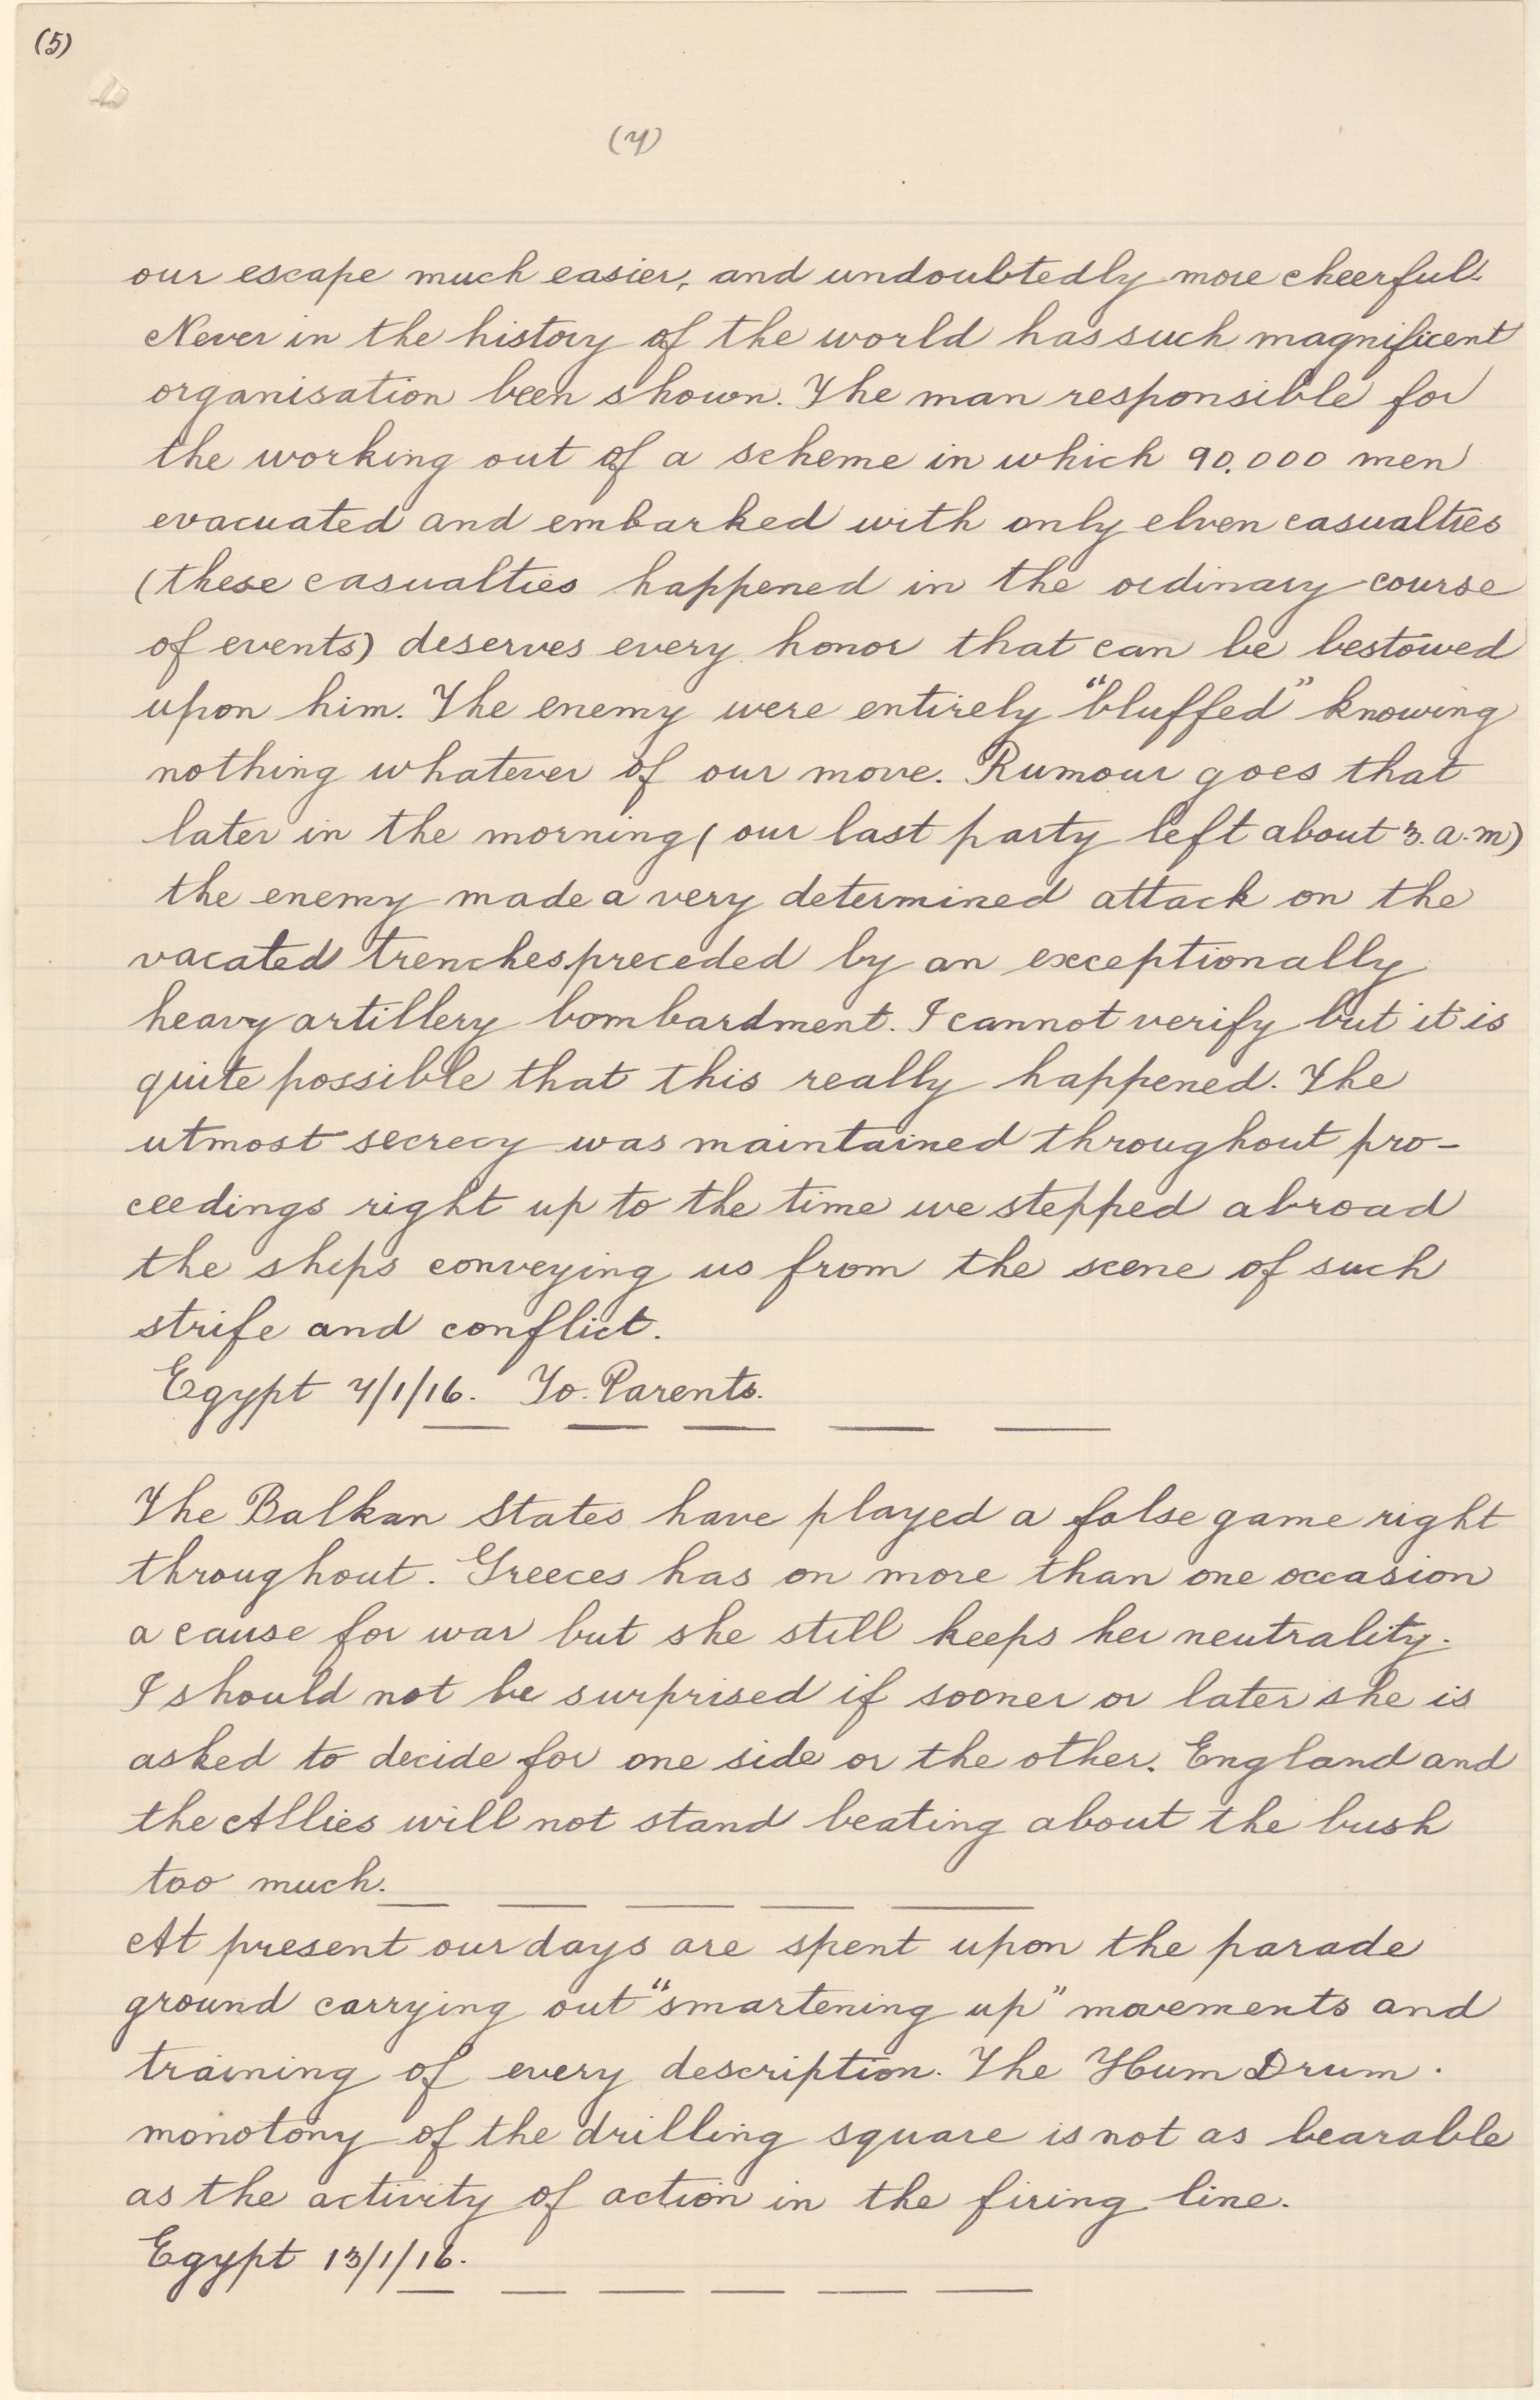 (5)
(4)
our escape much easier, and undoubtedly more cheerful.
Never in the history of the world has such magnificent
organisation been shown. The man responsible for
the working out of a scheme in which 90.000 men
evacuated and embarked with only elven casualties
(these casualties happened in the ordinary course
of events) deserves every honor that can be bestowed
upon him. The enemy were entirely "bluffed" knowing
nothing whatever of our move. Rumour goes that
later in the morning (our last party left about 3.a.m)
the enemy made a very determined attack on the
vacated trenches, preceded by an exceptionally
heavy artillery bombardment. I cannot verify but it is
quite possible that this really happened. The
utmost secrecy was maintained throughout pro-
ceedings right up to the time we stepped abroad
the ships conveying us from the scene of such
strife and conflict.
Egypt 4/1/16. To Parents.
The Balkan States have played a false game right
throughout. Greeces has on more than one occasion
a cause for war but she still keeps her neutrality.
I should not be surprised if sooner or later she is
asked to decide for one side or the other. England and
the Allies will not stand beating about the bush
too much.
At present our days are spent upon the parade
ground carrying out "smartening up" movements and
training of every description. The Hum Drum.
monotony of the drilling square is not as bearable
as the activity of action in the firing line.
Egypt 13/1/16.